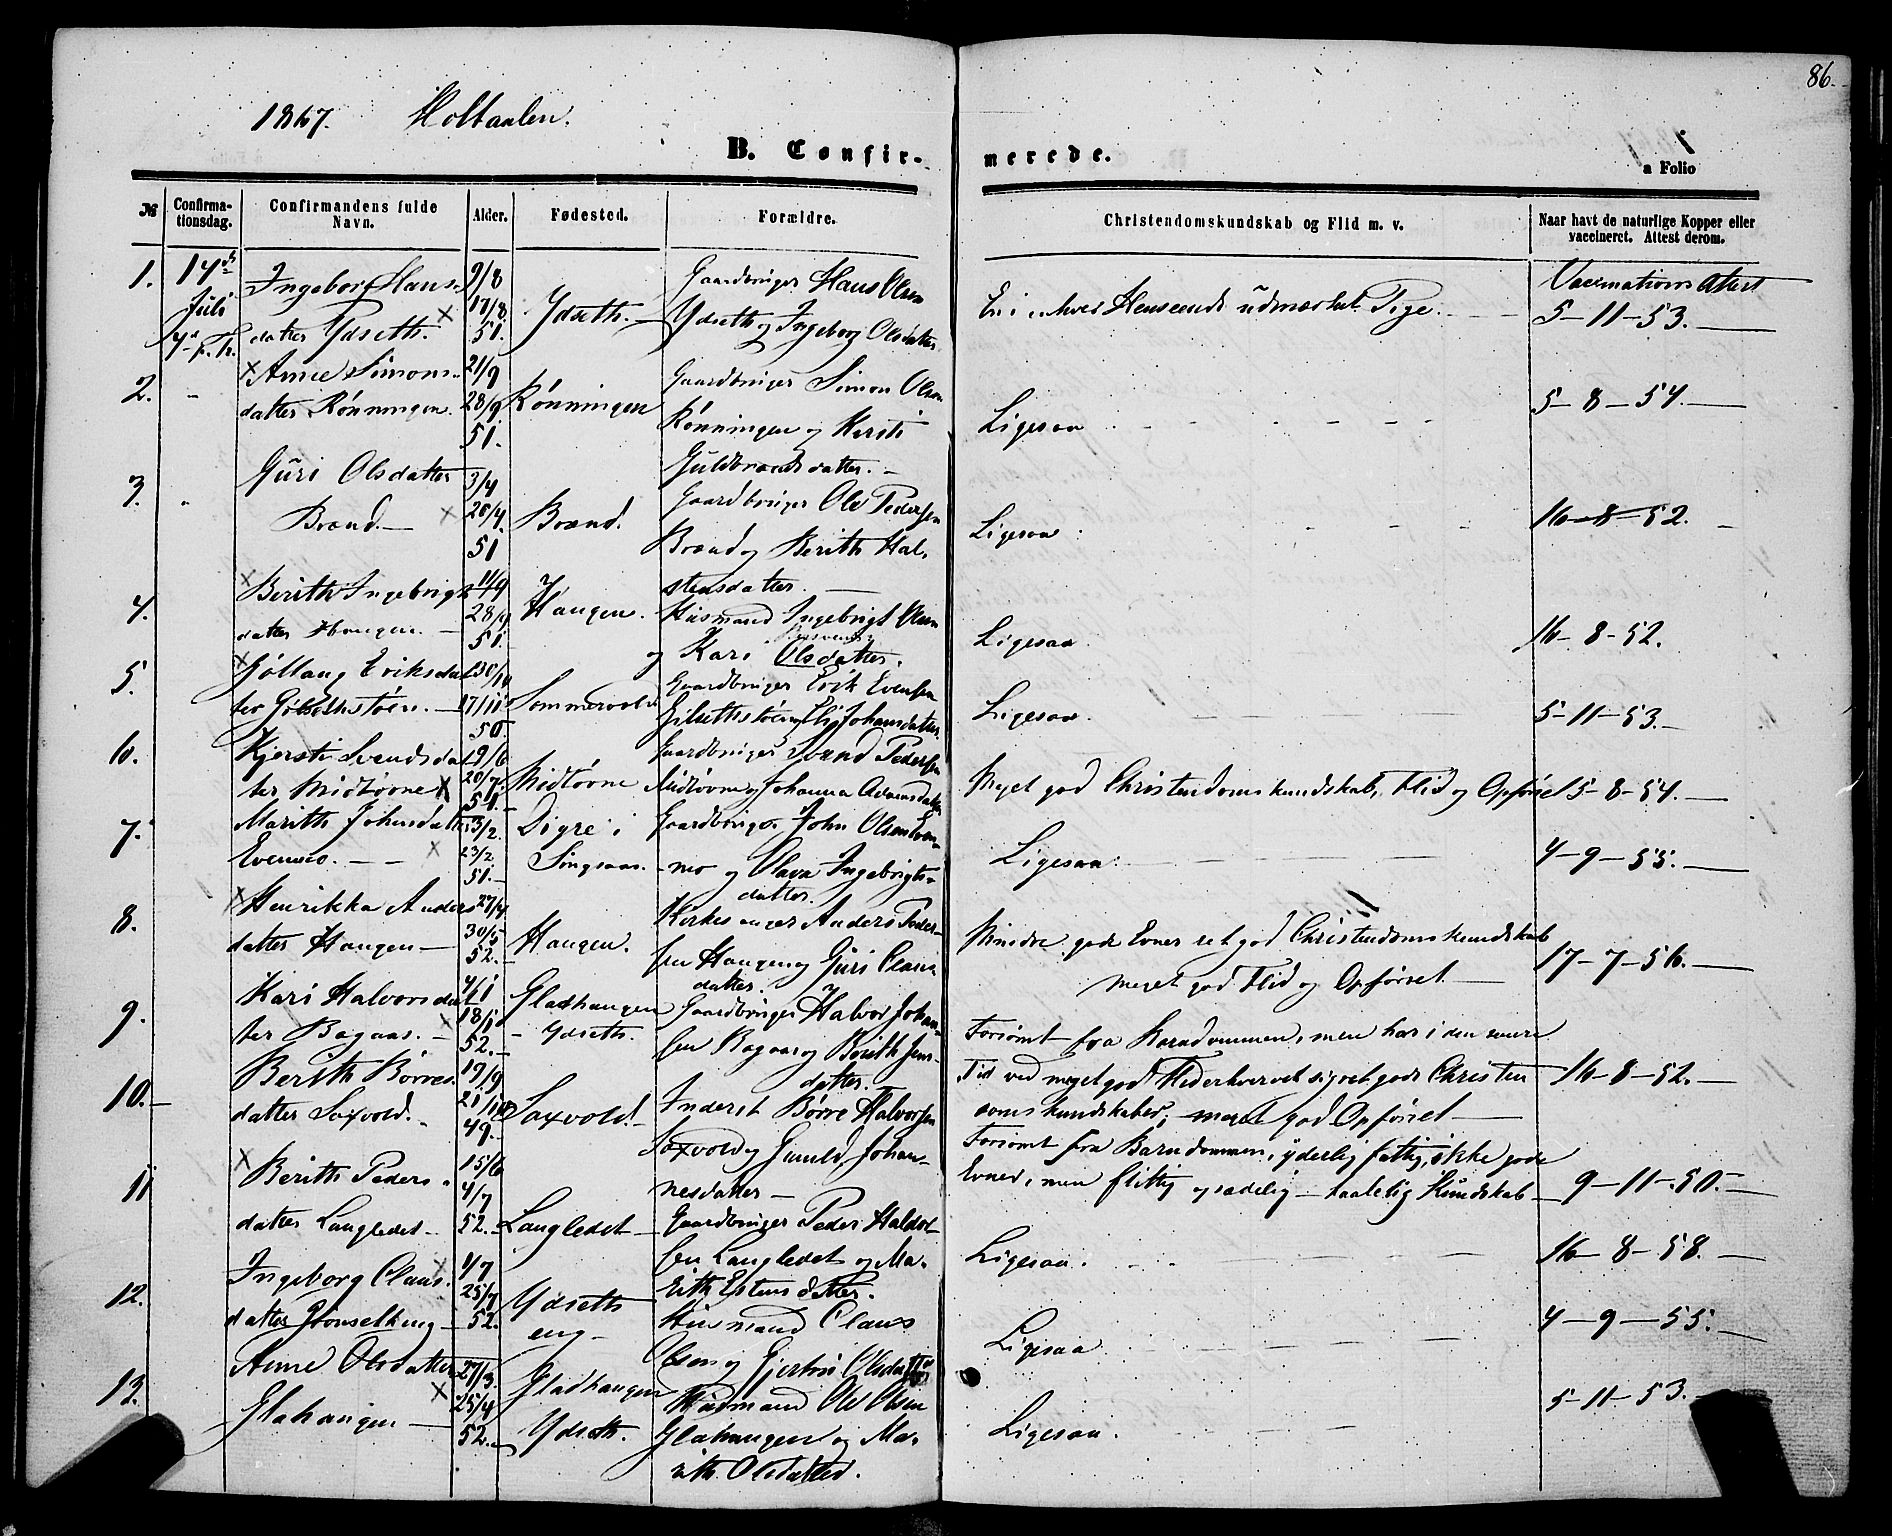 86.
1867. Holtaalen.
B. Confirmerede.
a Folio
№ Confirmationsdag. Confirmandens fulde Navn. Alder. Fødested. Forældre. Christendomskundskab og Flid m. v. Naar havt de naturlige Kopper eller vaccineret. Attest derom.
Vaccinations Attest
1. 14de Juli 4de p. Tr. Ingeborg Hansdatter Ydseth. 9/8 17/8 51. Ydseth. Gaardbruger Hans Olsen Ydseth og Ingeborg Olsdatter. En i enhver Henseende udmærket Pige. 5-11-53.
2. Anne Simonsdatter Rønningen. 21/9 28/9 51. Rønningen Gaardbruger Simon Olsen Rønningen og Kersti Guldbrandsdatter. Ligesaa 5-8-54.
3. Guri Olsdatter Brænd. 3/4 20/4 51 Brænd. Gaardbruger Ole Pedersen Brænd og Berith Halstensdatter. Ligesaa 16-8-52.
4. Berith Ingebrigtsdatter Haugen. 11/9 28/9 51. Haugen. Husmand Ingebrigt Olsen og Kari Olsdatter. Ligesaa 16-8-52.
5. Gollaug Eriksdatter 30/10 17/11 50. Sommervold Gaardbruger Erik Evensen Gilsethstøen og Eli Johansdatter Ligesaa 5-11-53.
6. Kjersti Svendsdatter Midtøvne 19/6 20/7 51. Midtøvne Gaardbruger Svend Pedersen Midtøvne og Johanna Arnesdatter Meget god Christendomskundskab, Flid og Opførsel 5-8-54.
7. Marith Johnsdatter Evenmo. 13/2 23/2 51. Digre i Singsaas. Gaardbruger John Olsen Evenmo og Olava Ingebrigtsdatter. Ligesaa: 4-9-55.
8. Henrikka Andersdatter Haugen 27/4 30/5 52. Haugen. Kirkesanger Anders Pedersen Haugen og Guri datter. Mindre gode Evner ret god Christendomskundskab meget god Flid og Opførsel. 17-7-56.
9. Kari Halvorsdatter Bogaas. 4/1 18/1 52. Gladhaugen Ydseth. Gaardbruger Halvor Johansen Bogaas og Berith Jensdatter. Forsømt fra Barndommen, men har i den senere Tid ved meget god Flid erhvervet sig ret gode Christendomskundskaber; meget god Opførsel 16-8-52.
10. Berith Børresdatter Saxvold. 19/9 21/10 49. Saxvold. Inderst Børre Halvorsen Saxvold og Gunild Johannesdatter Forsømt fra Barndommen, yderlig fattig, ikke gode Evner, men flittig og sædelig - taalelig Kundskab 9-11-50.
11 Berith Pedersdatter Langledet 15/6 4/7 52. Langledet Gaardbruger Peder Haldorsen Langledet og Marith Estensdatter. Ligesaa. 16-8-58.
12. Ingeborg Clausdatter 4/7 25/7 52. Ydseths eng Husmand Claus Olsen og Gjertru Olsdatter Ligesaa 4-9-55.
13. Anne Olsdatter Glahaugen 27/3. 25/4 52. Gladhaugen Ydseth. Husmand Ole Olsen Glahaugen og Marith Olsdatter. Ligesaa. 5-11-53.